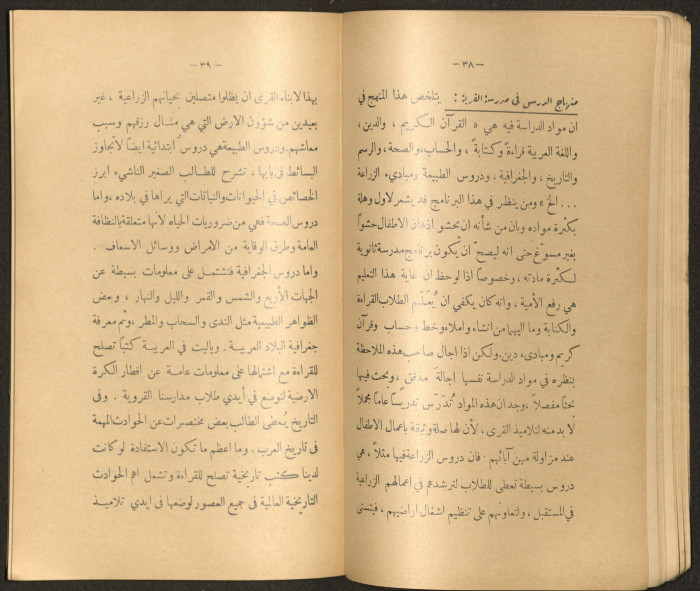 — ٣٨ —
منهاج الدرس في مدرسة القرية : يتلخص هذا المنهج في
ان مواد الدراسة فيه هي « القرآن الكريم ، والدين ،
واللغة العربية قراءةً وكتابةً ، والحساب، والصحة ، والرسم
والتاريخ ، والجغرافية ، ودروس الطبيعة ومبادىء الزراعة
... الخ » ومن ينظر في هذا البرنامج قد يشعر لاول وهلة
بكثرة مواده وبان من شأنه ان يحشو اذهان الاطفال حشواً
بغير مسوّغ حتى انه ليصحّ ان يكون برنامج مدرسة ثانوية
لكثرة مادته ، وخصوصاً اذا لوحظ ان غاية هذا التعليم
هي رفع الأمية ، وانه كان يكفي ان يُعَلَّم الطلاب القراءة
والكتابة وما اليهما من انشاء واملاء وخط وحساب وقرآن
كريم ومبادىء دين. ولكن اذا اجال صاحب هذه الملاحظة
بنظره في مواد الدراسة نفسها اجالة مدقق ، وبحث فيها
بحثا مفصلاً ، وجد ان هذه المواد تُدَرَّس تدريساً عاماً مجملاً
لا بد منه لتلاميذ القرى ، لأن لها صلة وثيقة باعمال الاطفال
عند مزاولة مهن آبائهم . فان دروس الزراعة فيها مثلاً ، هي
دروس بسيطة تعطى للطلاب لترشدهم في اعمالهم الزراعية
في المستقبل ، ولتعاونهم على تنظيم اشغال اراضيهم ، فيتسنى
— ٣٩ —
بهذا لابناء القرى ان يظلوا متصلين بحياتهم الزراعية ، غير
بعيدين من شؤون الارض التي هي مَنَال رزقهم وسبب
معاشهم. ودروس الطبيعة هي دروس ابتدائية ايضاً لا تجاوز
البسائط في بابها ، تشرح للطالب الصغير الناشيء ابرز
الخصائص في الحيوانات والنباتات التي يراها في بلاده ، واما
دروس الصحة فهي من ضروريات الحياه لأنها متعلقة بالنظافة
العامة وطرق الوقاية من الامراض ووسائل الاسعاف .
واما دروس الجغرافية فتشتمل على معلومات بسيطة عن
الجهات الأربع والشمس والقمر والليل والنهار ، وبعض
الظواهر الطبيعية مثل الندى والسحاب والمطر ، وثم معرفة
جغرافية البلاد العربية . وياليت في العربية كتباً تصلح
للقراءة مع اشتمالها على معلومات عامة عن اقطار الكرة
الارضية لتوضع في أيدي طلاب مدارسنا القروية . وفي
التاريخ يُعطى الطالب بعض مختصرات عن الحوادث المهمة
في تاريخ العرب . وما اعظم ما تكون الاستفادة لو كانت
لدينا كتب تاريخية تصلح للقراءة وتشمل اهم الحوادث
التاريخية العالمية في جميع العصور لوضعها في ايدي تلاميذ